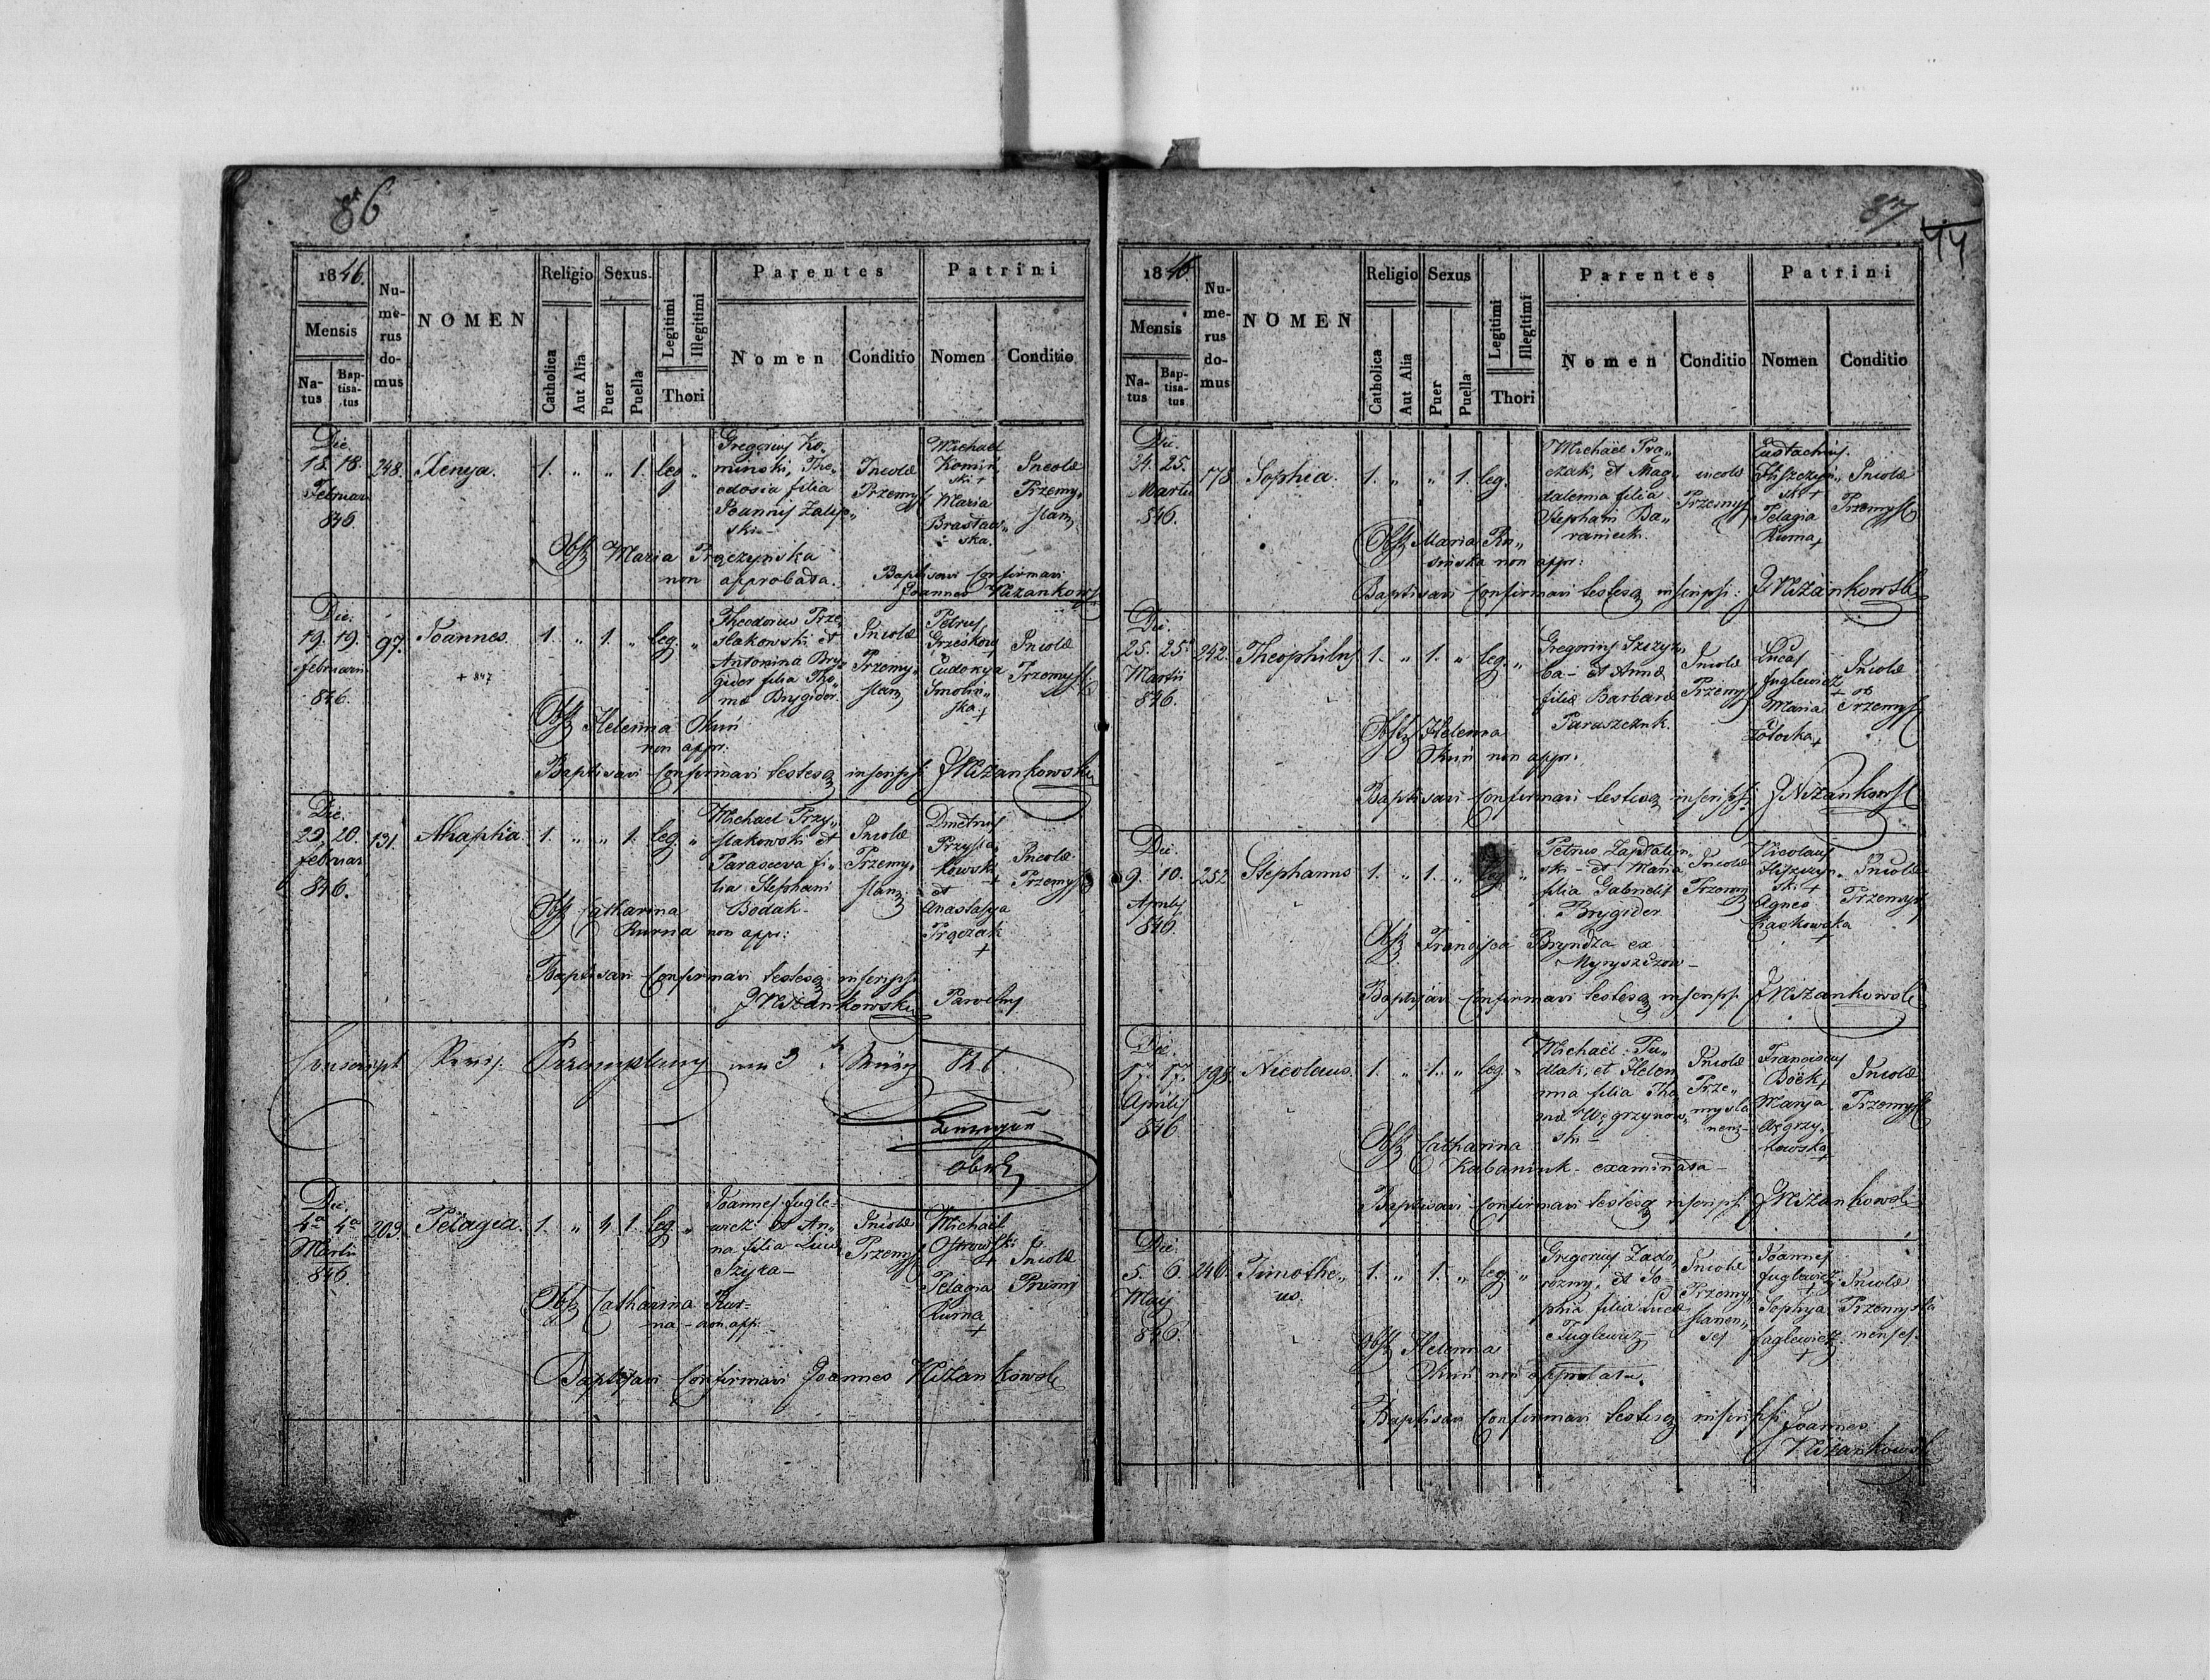 86
1846.
Mensis
Na-
tus
Bap-
tisa-
tus
Nu-
me-
rus
do-
mus
NOMEN
Religio
Catholica
Aut Alia
Sexus.
Puer
Puella
Legitimi
Illegitimi
Thori
Parentes
Nomen
Conditio
Patrini
Nomen
Conditio
Die
18. 18.
Februar
846
248.
Xenya.
1. " " 1. leg "
Gregorius Ko-
minski, The-
odosia filia
Joannis Zalip-
ski
Incolae
Przemysl
Michael
Komiń
ski +
Maria
Brastaw
ska.
Incolae
Przemy
slan
Obst Maria Pręczyńska
non approbata.
Baptisavi Confirmavi
Joannes Niżankows
Die
19. 19.
februarii
846.
97.
Joannes.
+ 847
1. " 1. " leg. "
Theodorus Prze
slakowski et
Antonina Bryg
gider filia Tho
mae Brygider.
Incolae
Przemy
slan
Petrus
Grzeskow
+
Eudokya
Smolin
ska +
Incolae
Przemysl
Obst Helenna Okuń
non appr:
Baptisavi Confirmavi testesq inscripsi J Niżankowski
Die
20, 20.
februar
846.
131.
Ahaphia
1. " " 1. leg. "
Michael Przy
slakowski et
Parasceva fi
lia Stephani
Bodak
Incolae
Przemy
slan
Dmetrus
Przysla
kowski
+
et
Anastasya
Pręczak
+
Incolae
Przemysl
Obst Catharina
Kurna non appr:
Baptisavi Confirmavi testesq inscripsi
J Niżankowski Parochus
Conscript. Revis. Przemyslany 3
Die
4a 4a
Martii
846
209
Pelagia.
1. " 1. leg. "
Joannes Fugle-
wicz et An
na filia Lucae
Szyka
Incolae
Przemysl
Michael
Ostrowski
+
Pelagia
Kurna
+
Incolae
Priom
Obst Catharina Kur-
na - non app:
Baptisavi Confirmavi Joannes Niżankowski
87
44
1846.
Mensis
Na-
tus
Bap-
tisa-
tus
Nu-
me-
rus
do-
mus
NOMEN
Religio
Catholica
Aut Alia
Sexus
Puer
Puella
Legitimi
Illegitimi
Thori
Parentes
Nomen
Conditio
Patrini
Nomen
Conditio
Die
24. 25.
Martii
846.
178
Sophia.
1. " " 1. leg.
Michaël Prą
czak, et Mag
dalenna filia
Stephani Ba
raniecki.
incolae
Przemysl
Eustachius
Hiszczyń
ski +
Pelagia
Kurna +
Incolae
Przemysl
Obst Maria Ru
sińska non appr:
Baptisavi Confirmavi testesq inscripsi: J Niżankowski
Die
25. 25.
Martii
846.
242.
Theophilus
1. " 1. " leg. "
Gregorius Szczyr
ba - et Anna
filia Barbarae
Paraszczuk.
Incolae
Przemysl
Lucas
fuglewicz
+
Maria
Łotocka +
Incolae
Przemysl
Obst Helenna
Okuń non appr.
Baptisavi Confirmavi testesq inscripsi J Niżankows
Die
9. 10.
Aprilis
846.
252
Stephanus
1. " 1. " leg "
Petrus Zaprutyn
ski - et Maria
filia Gabrielis
Brygider
Incolae
Przemy
Nicolaus
Hiszczyń
ski +
Agnes
Laskowska
+
Incolae
Przemysl
Obst Francisca Bryndza ex
Myryszczow -
Baptisavi Confirmavi testesq inscripsi J Niżankowski
Die
17. 17.
Aprilis
846
198
Nicolaus.
1. " 1. " leg "
Michaël Pu
dlak, et Helen
na filia Tho
mae Węgrzynow
ski -
Incolae
Prze
mysla
nens
Franciscus
Böck +
Marya
Węgrzy
nowska +
Incolae
Przemysl
Obst Catharina
Kabaniuk - examinata -
Baptisavi Confirmavi testesq inscripsi J Niżankowski
Die
5. 6.
Maji
846.
246
Timothe
us.
1. " 1. " leg "
Gregorius Zado
rozny, et So
phia filia Lucae
Fuglewicz -
Incolae
Przemy
slanen
ses
Joannes
fuglewicz
Sophya
fuglewicz
+
Incolae
Przemysla
nenses.
Obst Helenna
Okuń non approbata.
Baptisavi Confirmavi testesq inscripsi Joannes
Niżankowski